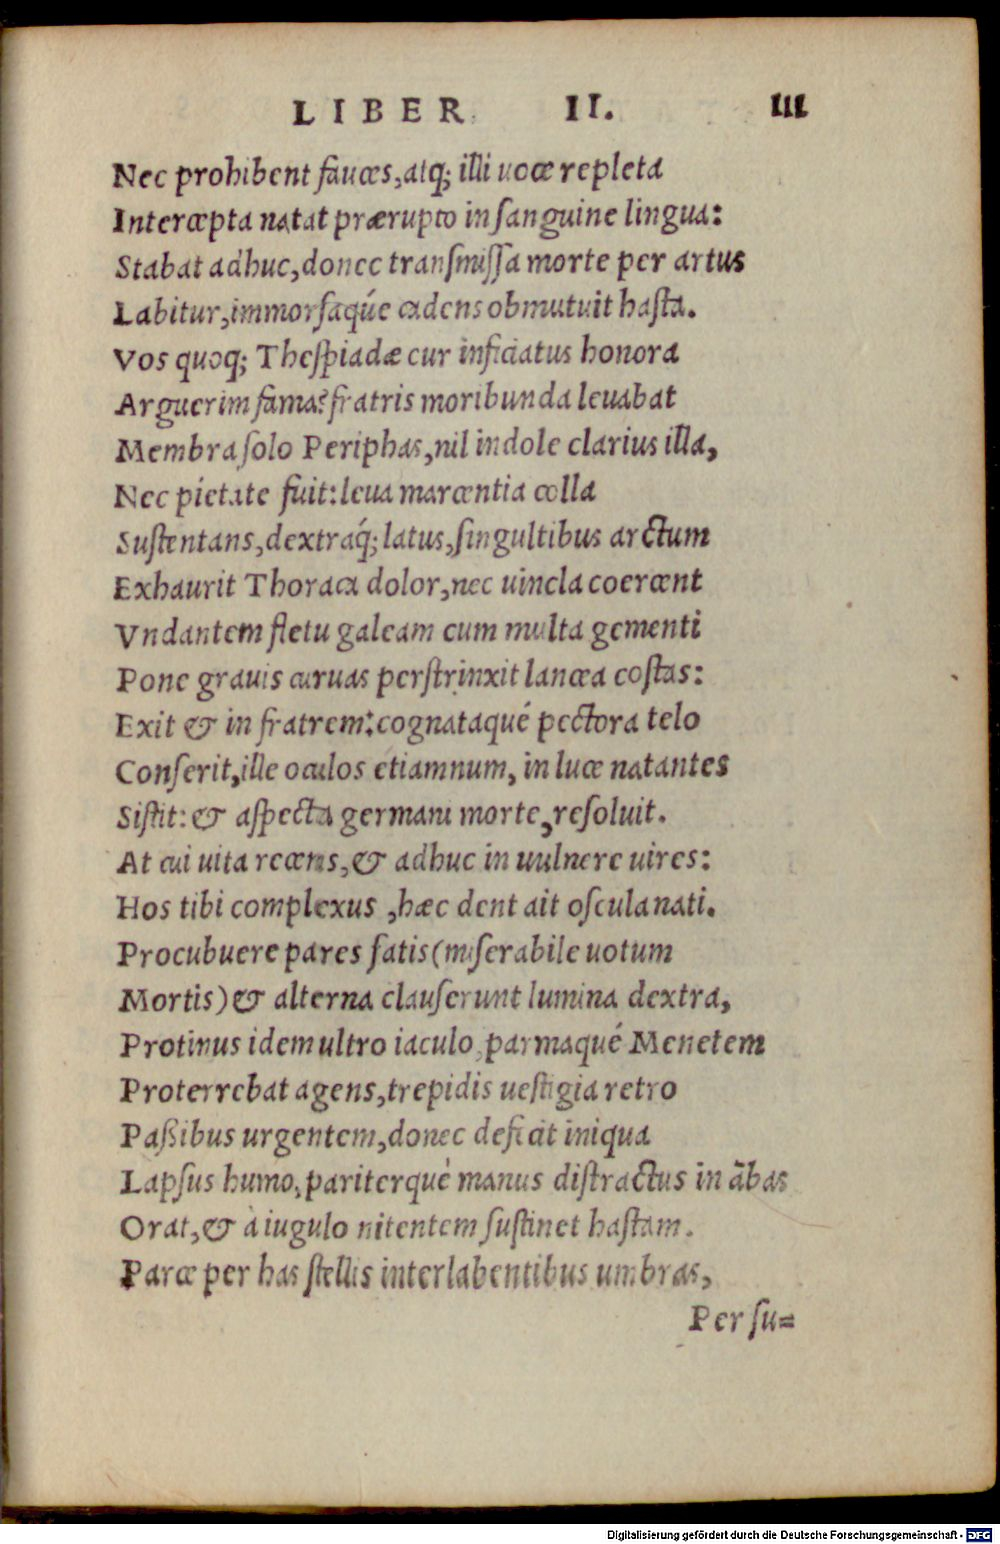 LIBER II. III
Nec prohibent fauces,atq; illi uoce repleta
Intercepta natat prærupto in sanguine lingua:
Stabat adhuc,donec transmissa morte per artus
Labitur,immorsaqúe cadens obmutuit hasta.
Vos quoq; Thespiadæ cur inficiatus honora
Arguerim fama? fratris moribunda leuabat
Membra solo Periphas,nil indole clarius illa,
Nec pietate fuit:leua marcentia colla
Sustentans,dextraq́; latus,singultibus arctum
Exhaurit Thoraca dolor,nec uincla coercent
Vndantem fletu galeam cum multa gementi
Pone grauis curuas perstrinxit lancea costas:
Exit & in fratrem:cognataqué pectora telo
Conserit,ille oculos etiamnum, in luce natantes
Sistit: & aspecta germani morte,resoluit.
At cui uita recens,& adhuc in uulnere uires:
Hos tibi complexus ,hæc dent ait oscula nati.
Procubuere pares fatis(miserabile uotum
Mortis)& alterna clauserunt lumina dextra,
Protinus idem ultro iaculo,parmaqué Menetem
Proterrebat agens,trepidis uestigia retro
Paßibus urgentem,donec deficit iniqua
Lapsus humo,pariterquè manus distractus in ābas
Orat,& à iugulo nitentem sustinet hastam.
Parce per has stellis interlabentibus umbras,
Per su=
Digitalisierung gefördert durch die Deutsche Forschungsgemeinschaft - DFG